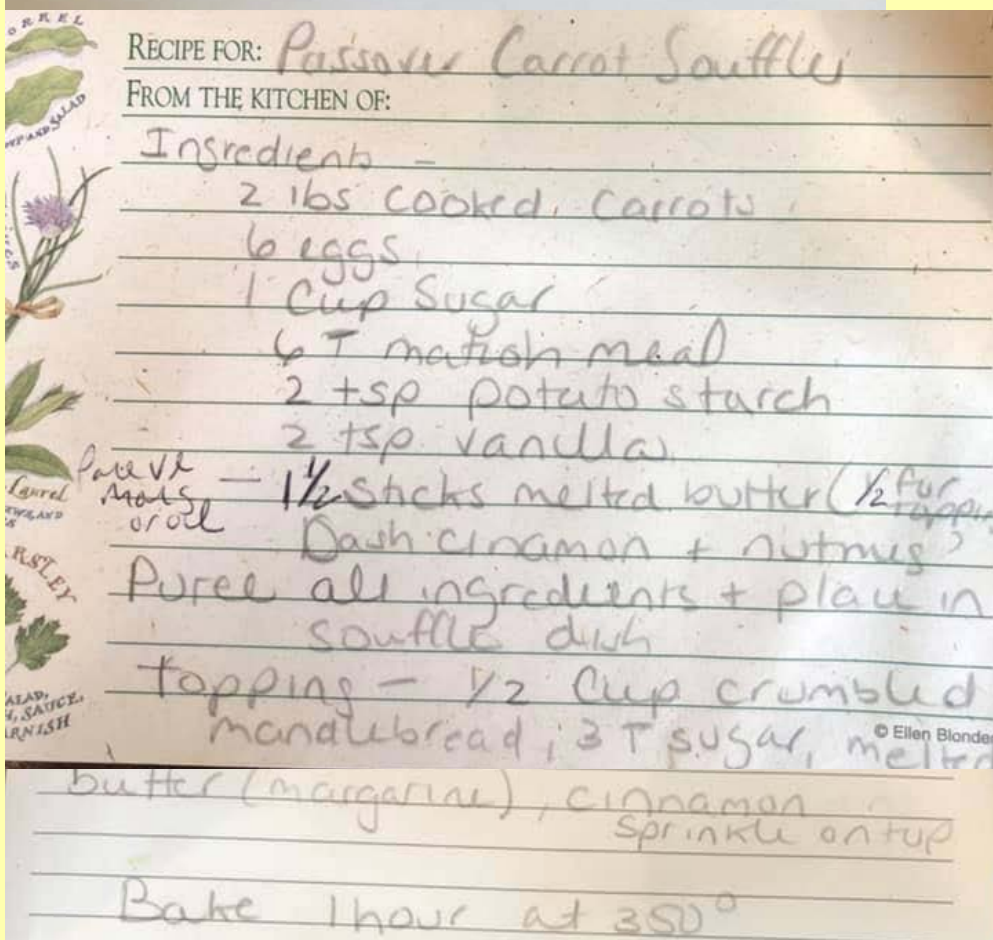 ORREL
SOUP AND SALAD
RECIPE FOR: Passover Carrot Souffle
FROM THE KITCHEN OF:
Ingredients -
2 lbs cooked carrots
6 eggs
1 Cup Sugar
6 T matzoh meal
2 tsp potato starch
2 tsp vanilla
Pareve
marg
or oil
- 1 1/2 Sticks melted butter (1/2 for
topping)
Dash cinamon + nutmeg
Puree all ingredients + place in
souffle dish
topping - 1/2 Cup crumbled
mandlebread, 3 T sugar, melted
butter (margarine), cinnamon
sprinkle on top
Bake 1 hour at 350°
Laurel
RSLEY
ALAD,
H, SAUCE,
ARNISH
© Ellen Blonder